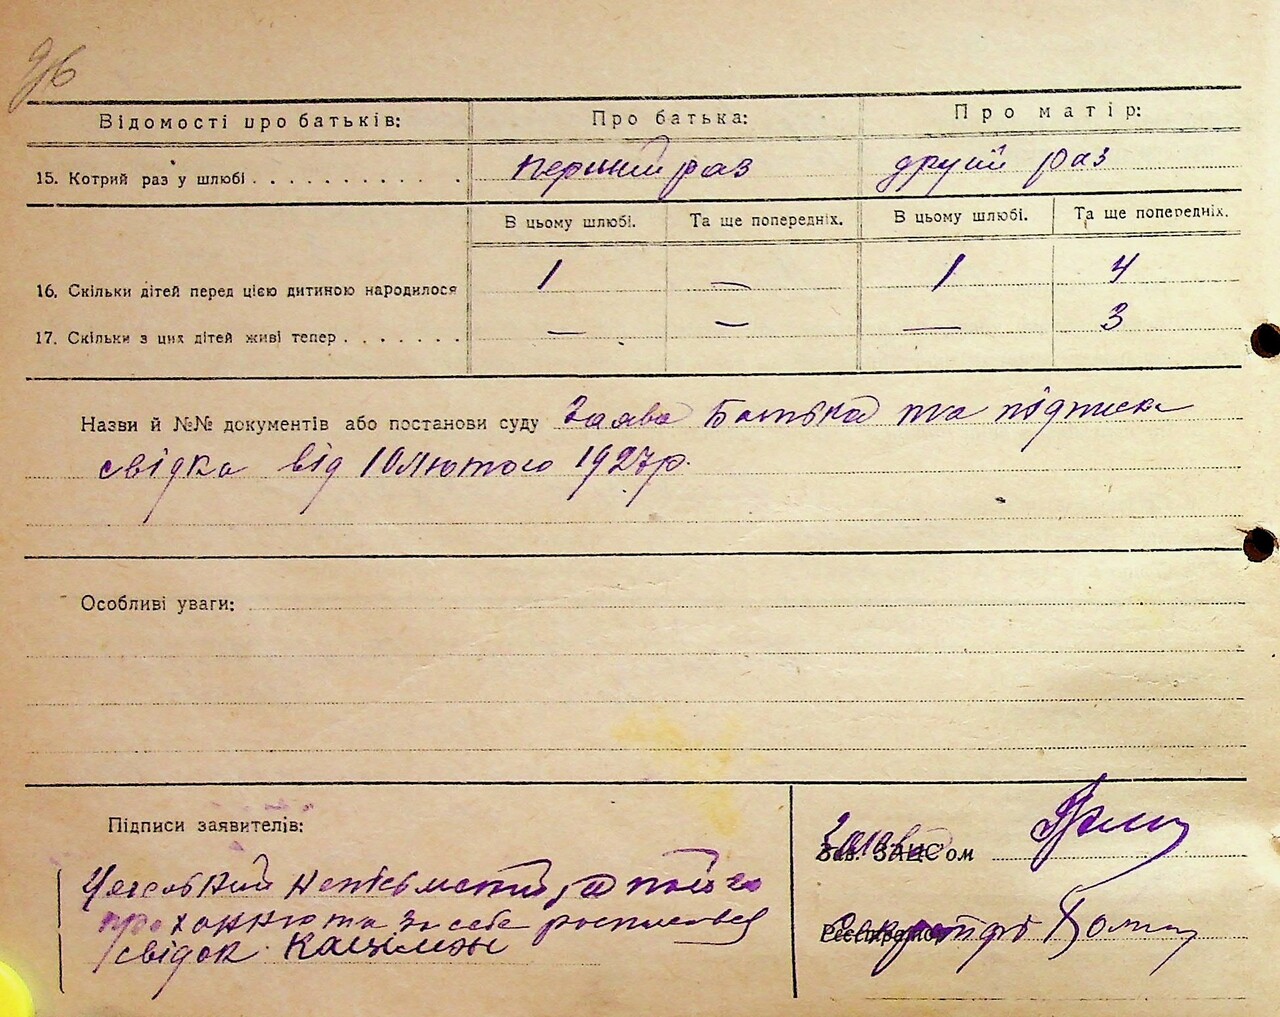 96
Відомості про батьків: Про батька: Про матір:
15. Котрий раз у шлюбі . . . . . . . . . . . перший раз другій раз
В цьому шлюбі. Та ще попередніх. В цьому шлюбі. Та ще попередніх.
16. Скільки дітей перед цією дитиною народилося 1 — 1 4
17. Скільки з цих дітей живі тепер . . . . . . . — — — 3
Назви й №№ документів або постанови суду Заява Батька та підписка
свідка від 10 лютого 1927 р.
Особливі уваги:
Підписи заявителів:
Голова
Зав. ЗАЦС'ом
неписьметний за
проханню та за себе росписався
свідок
Секретарь
Реєстратор